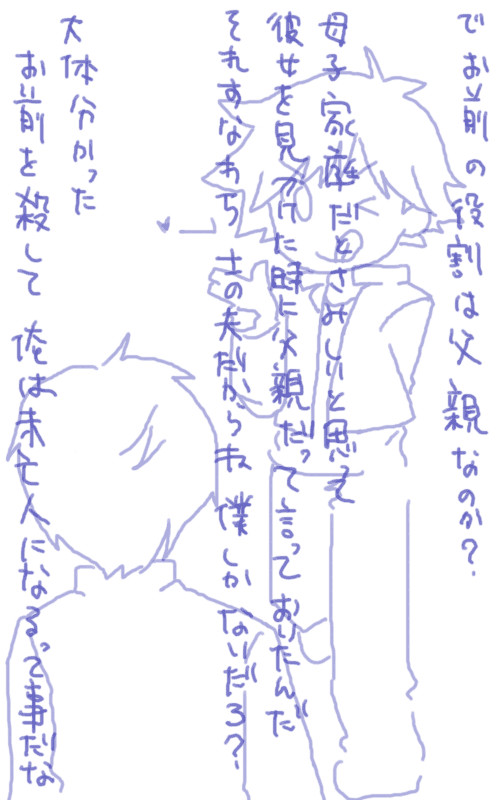 でお前の役割は父親なのか?
母子家庭だとさみしいと思って
彼女を見つけた時に父親だって言っておいたんだ
それすなわち 士の夫だからね 僕しかないだろ?
大体分かった
お前を殺して 俺は未亡人になるって事だな